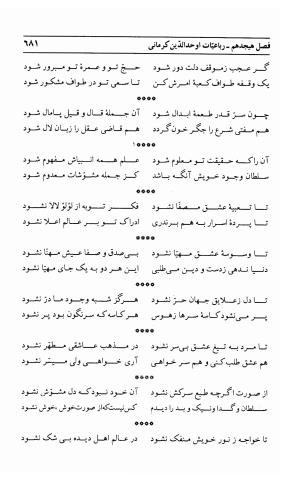 فصل هیجدهم ـ رباعیّات اوحدالدّین کرمانی ۶۸۱
گر عجب ز موقف دلت دور شود حجّ تو و عمرۀ تو مبرور شود
یک وقفه طواف کعبۀ امرش کن تا سعی تو در طواف مشکور شود
****
چون سرّ قدر طعمۀ ابدال شود آن جملۀ قال و قیل پامال شود
هم مفتی شرع را جگر خون گردد هم قاضی عقل را زبان لال شود
****
آن را که حقیقت تو معلوم شود علم همه انبیاش مفهوم شود
سلطان وجود خویش آنگه باشد کز جمله مشوّشات معدوم شود
****
تا تعبیۀ عشق مصفّا نشود فکر تو به از لؤلؤ لالا نشود
تا پردۀ اسرار به هم برندری ادراک تو بر عالم اعلا نشود
****
تا وسوسۀ عشق مهیّا نشود بی‌صدق و صفا عیش مهنّا نشود
دنیا ندهی ز دست و دین می‌طلبی این هر دو به یک جای مهیّا نشود
****
تا دل ز علایق جهان حرّ نشود هرگز شبه وجود ما درّ نشود
پر می‌نشود کاسۀ سرها ز هوس هر کاسه که سرنگون بود پر نشود
****
تا مرد به تیغ عشق بی‌سر نشود در مذهب عاشقی مطهّر نشود
هم عشق طلب کنی و هم سر خواهی آری خواهی ولی میسّر نشود
****
از صورت اگرچه طبع سرکش نشود آن خود نبود که دل مشوّش نشود
سلطان و گدا و نیک و بد را دیدم کس نیست که از صورت خوش، خوش نشود
****
تا خواجه ز نور خویش منفک نشود در عالم اهل دیده بی شک نشود